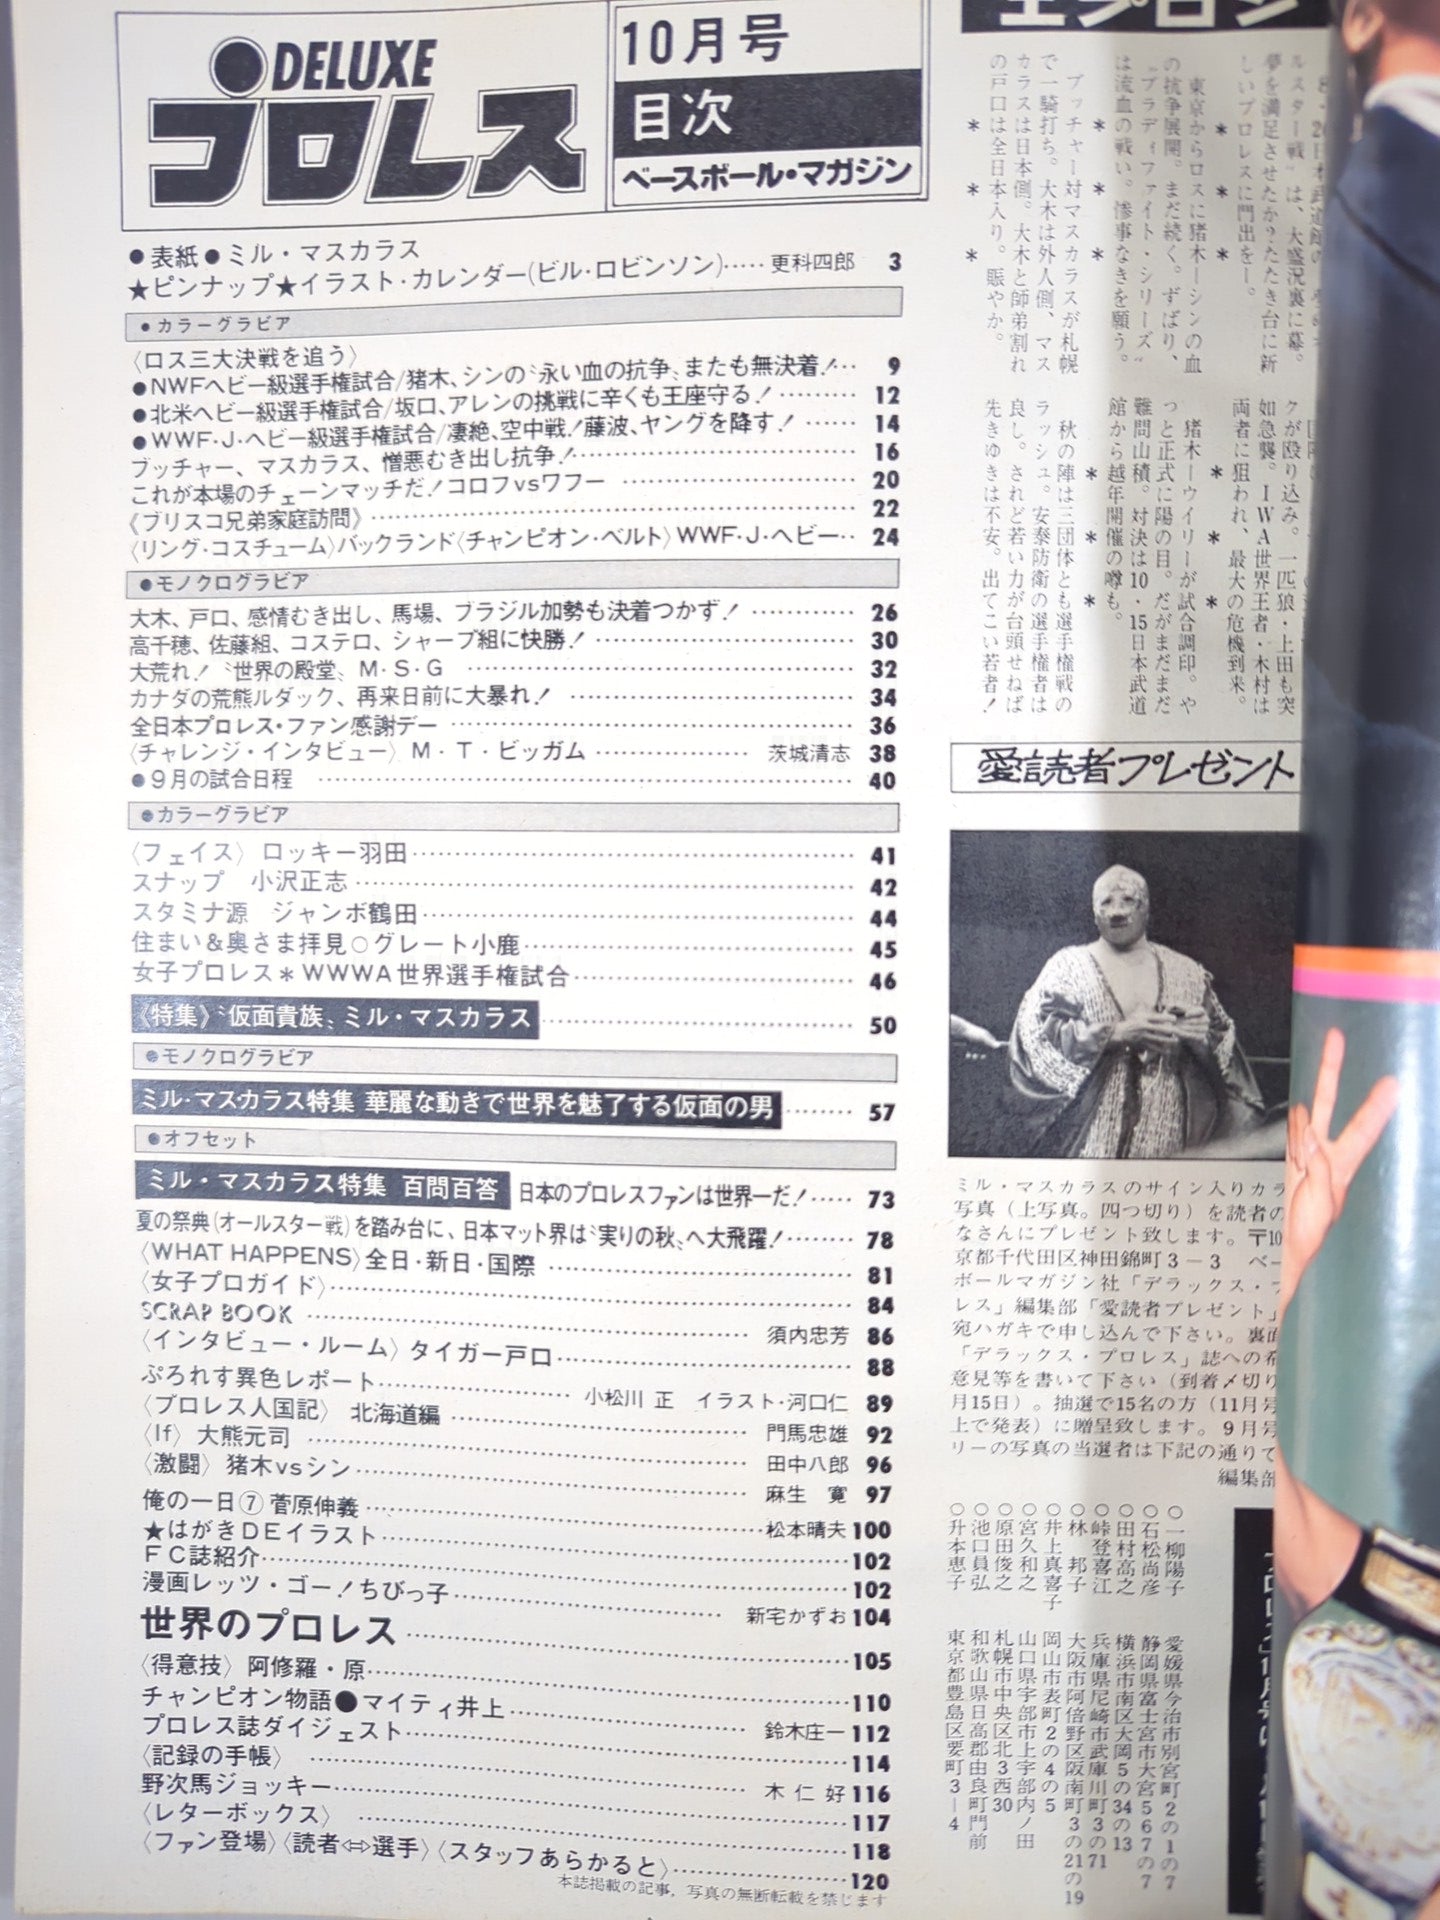 DELUXE
プロレス
10月号
目次
ベースボール・マガジン
●表紙●ミル・マスカラス
★ピンナップ★イラスト・カレンダー(ビル・ロビンソン)…… 更科四郎 3
●カラーグラビア
〈ロス三大決戦を追う〉
●NWFヘビー級選手権試合/猪木、シンの〝永い血の抗争〟またも無決着!… 9
●北米ヘビー級選手権試合/坂口、アレンの挑戦に辛くも王座守る! ……… 12
●WWF・J・ヘビー級選手権試合/凄絶、空中戦!藤波、ヤングを降す! …… 14
ブッチャー、マスカラス、憎悪むき出し抗争!…… 16
これが本場のチェーンマッチだ!コロフvsワフー …… 20
《ブリスコ兄弟家庭訪問》…… 22
〈リング・コスチューム〉バックランド〈チャンピオン・ベルト〉WWF・J・ヘビー… 24
●モノクログラビア
大木、戸口、感情むき出し、馬場、ブラジル加勢も決着つかず! ………… 26
高千穂、佐藤組、コステロ、シャープ組に快勝! …… 30
大荒れ!〝世界の殿堂〟M・S・G …… 32
カナダの荒熊ルダック、再来日前に大暴れ! …… 34
全日本プロレス・ファン感謝デー …… 36
〈チャレンジ・インタビュー〉M・T・ビッガム …… 茨城清志 38
●9月の試合日程 …… 40
●カラーグラビア
〈フェイス〉ロッキー羽田…… 41
スナップ 小沢正志…… 42
スタミナ源 ジャンボ鶴田…… 44
住まい&奥さま拝見○グレート小鹿…… 45
女子プロレス＊WWWA世界選手権試合…… 46
《特集》〝仮面貴族〟ミル・マスカラス …… 50
●モノクログラビア
ミル・マスカラス特集 華麗な動きで世界を魅了する仮面の男 …… 57
●オフセット
ミル・マスカラス特集 百問百答 日本のプロレスファンは世界一だ!…… 73
夏の祭典(オールスター戦)を踏み台に、日本マット界は〝実りの秋〟へ大飛躍!…… 78
〈WHAT HAPPENS〉全日・新日・国際 …… 81
〈女子プロガイド〉…… 84
SCRAP BOOK …… 須内忠芳 86
〈インタビュー・ルーム〉タイガー戸口…… 88
ぷろれす異色レポート…… 小松川 正 イラスト・河口仁 89
〈プロレス人国記〉 北海道編 …… 門馬忠雄 92
〈If〉大熊元司 …… 田中八郎 96
〈激闘〉猪木vsシン…… 麻生 寛 97
俺の一日⑦ 菅原伸義…… 松本晴夫 100
★はがきDEイラスト…… 102
FC誌紹介…… 102
漫画レッツ・ゴー!ちびっ子…… 新宅かずお 104
世界のプロレス …… 105
〈得意技〉阿修羅・原…… 110
チャンピオン物語●マイティ井上…… 鈴木庄一 112
プロレス誌ダイジェスト…… 114
〈記録の手帳〉 …… 木 仁 好 116
野次馬ジョッキー…… 117
〈レターボックス〉 …… 118
〈ファン登場〉〈読者⇔選手〉〈スタッフあらかると〉…… 120
本誌掲載の記事，写真の無断転載を禁じます
エプロン
ルスター戦〟は、大盛況裏に幕。
夢を満足させたか？たたき台に新
しいプロレスに門出を―。
＊ ＊ ＊
東京からロスに猪木―シンの血
の抗争展開。まだ続く。ずばり、
〝ブラディファイト・シリーズ〟
は流血の戦い。惨事なきを願う。
＊ ＊ ＊
ブッチャー対マスカラスが札幌
で一騎打ち。大木は外人側、マス
カラスは日本側。大木と師弟割れ
の戸口は全日本入り。賑やか。
＊ ＊ ＊
クが殴り込み。一匹狼・上田も突
如急襲。IWA世界王者・木村は
両者に狙われ、最大の危機到来。
＊ ＊ ＊
猪木―ウイリーが試合調印。や
っと正式に陽の目。だがまだまだ
難問山積。対決は10・15日本武道
館から越年開催の噂も。
＊ ＊ ＊
秋の陣は三団体とも選手権戦の
ラッシュ。安泰防衛の選手権者は
良し。されど若い力が台頭せねば
先きゆきは不安。出てこい若者!
愛読者プレゼント
ミル・マスカラスのサイン入りカラ
写真（上写真。四つ切り）を読者の
なさんにプレゼント致します。〒10
京都千代田区神田錦町3－3 ベー
ボールマガジン社「デラックス・プ
レス」編集部「愛読者プレゼント」
宛ハガキで申し込んで下さい。裏面
「デラックス・プロレス」誌への希
意見等を書いて下さい（到着〆切り
月15日）。抽選で15名の方（11月号
上で発表）に贈呈致します。9月号
リーの写真の当選者は下記の通りで
編集部
○一柳陽子 愛媛県今治市別宮町2の1の7
○石松尚彦 静岡県富士宮市大宮567の7
○田村高之 横浜市南区大岡5の34の13
○峠登喜江 兵庫県尼崎市武庫川町3の71
○林 邦子 大阪市阿倍野区阪南町3の21の19
○井上真喜子 岡山市表町2の4の5
○宮久和之 山口県宇部市上宇部内ノ田
○原田俊之 札幌市中央区北3西30
○池口員弘 和歌山県日高郡由良町門前
○升本恵子 東京都豊島区要町3―4